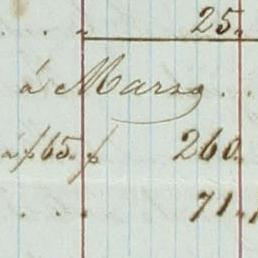 25.
á Marzo
á f 65. f 260.
71.